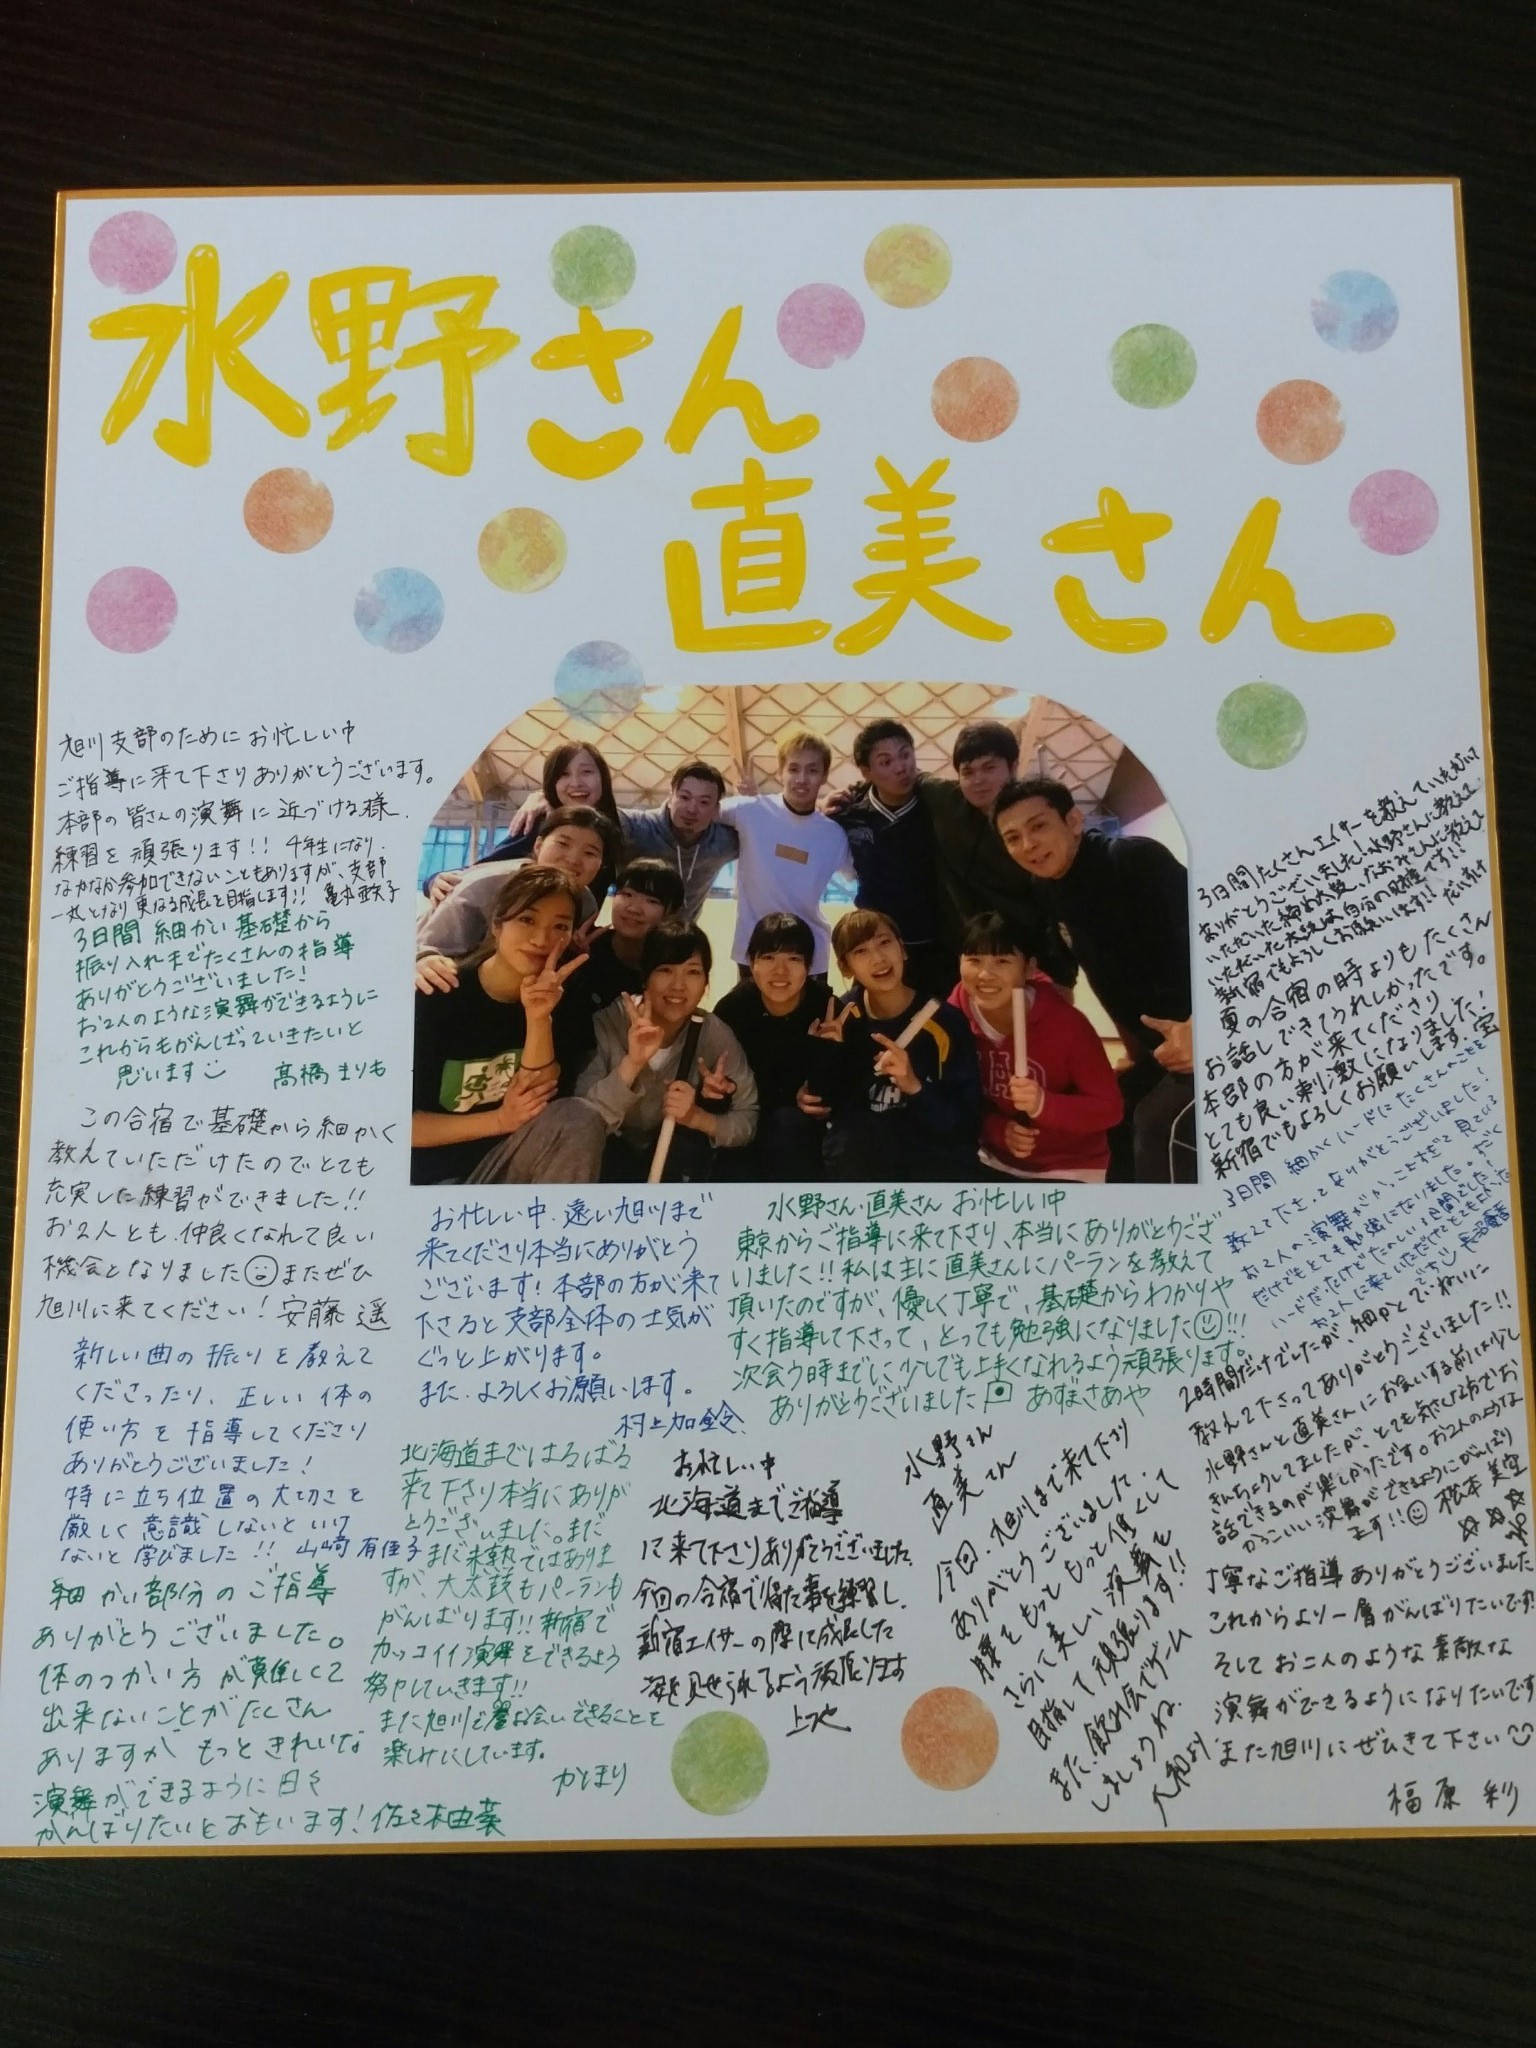 水野さん
直美さん
旭川支部のためにお忙しい中
ご指導に来て下さりありがとうございます。
本部の皆さんの演舞に近づける様、
練習を頑張ります!! 4年生になり、
なかなか参加できないこともありますが、支部
一丸となり更なる成長を目指します!! 亀丸
3日間 細かい基礎から
振り入れまでたくさんの指導
ありがとうございました!
お2人のような演舞ができるように
これからもがんばっていきたいと
思います 高橋まりも
この合宿で基礎から細かく
教えていただけたのでとても
充実した練習ができました!!
お2人とも仲良くなれて良い
機会となりました またぜひ
旭川に来てください! 安藤 遥
新しい曲の振りを教えて
くださったり、正しい体の
使い方を指導してくださり
ありがとうございました!
特に立ち位置の大切さを
厳しく意識しないといけ
ないと学びました!! 山﨑 有佳子
細かい部分のご指導
ありがとうございました。
体のつかい方が難しくて
出来ないことがたくさん
ありますが もっときれいな
演舞ができるように日々
がんばりたいとおもいます! 佐々木由菜
お忙しい中、遠い旭川まで
来てくださり本当にありがとう
ございます! 本部の方が来て
下さると支部全体の士気が
ぐっと上がります。
また、よろしくお願いします。
村上加鈴
北海道まではるばる
来て下さり本当にありが
とうございました。まだ
まだ未熟ではありま
すが、大太鼓もパーランも
がんばります!! 新宿で
カッコイイ演舞をできるよう
努力していきます!!
また旭川でお会いできることを
楽しみにしています。
かほり
水野さん・直美さん お忙しい中
東京からご指導に来て下さり、本当にありがとうござ
いました!! 私は主に直美さんにパーランを教えて
頂いたのですが、優しく丁寧で、基礎からわかりや
すく指導して下さって、とっても勉強になりました!!!
次会う時までに少しでも上手くなれるよう頑張ります。
ありがとうございました あずまさあや
お忙しい中
北海道までご指導
に来て下さりありがとうございました。
今回の合宿で得た事を練習し、
新宿エイサーの際に成長した
姿を見せられるよう頑張ります
水野さん
直美さん
今回、旭川まで来て下さり
ありがとうございました。
腰をもっともっと低くして
さらに美しい演舞を
目指して頑張ります!!
また、飲み会でゲーム
しましょうね
大和より
3日間たくさんエイサーを教えていただいて
ありがとうございました!水野さんに教えて
いただいた締め太鼓、なおみさんに教えて
いただいた大太鼓は自分の財産です!!
新宿でもよろしくお願いします!! だいすけ
夏の合宿の時よりもたくさん
お話しできてうれしかったです。
本部の方が来てくださり
とても良い刺激になりました!
新宿でもよろしくお願いします。宝
3日間 細かくハードにたくさんのことを
教えて下さってありがとうございました!
お2人の演舞がかっこよすぎて見ている
だけでもとても勉強になりました。
ハードだったけどたのしい3日間でした!
2時間だけでしたが、細かくていねいに
教えて下さってありがとうございました!!
水野さんと直美さんにお会いする前は少し
きんちょうしてましたが、とても気さくな方でお
話できるのが楽しかったです。お2人のような
かっこいい演舞ができるようにがんばり
ます!! 松本 美空
丁寧なご指導ありがとうございました
これからより一層がんばりたいです!
そしてお二人のような素敵な
演舞ができるようになりたいです
また旭川にぜひきて下さい
福原 彩